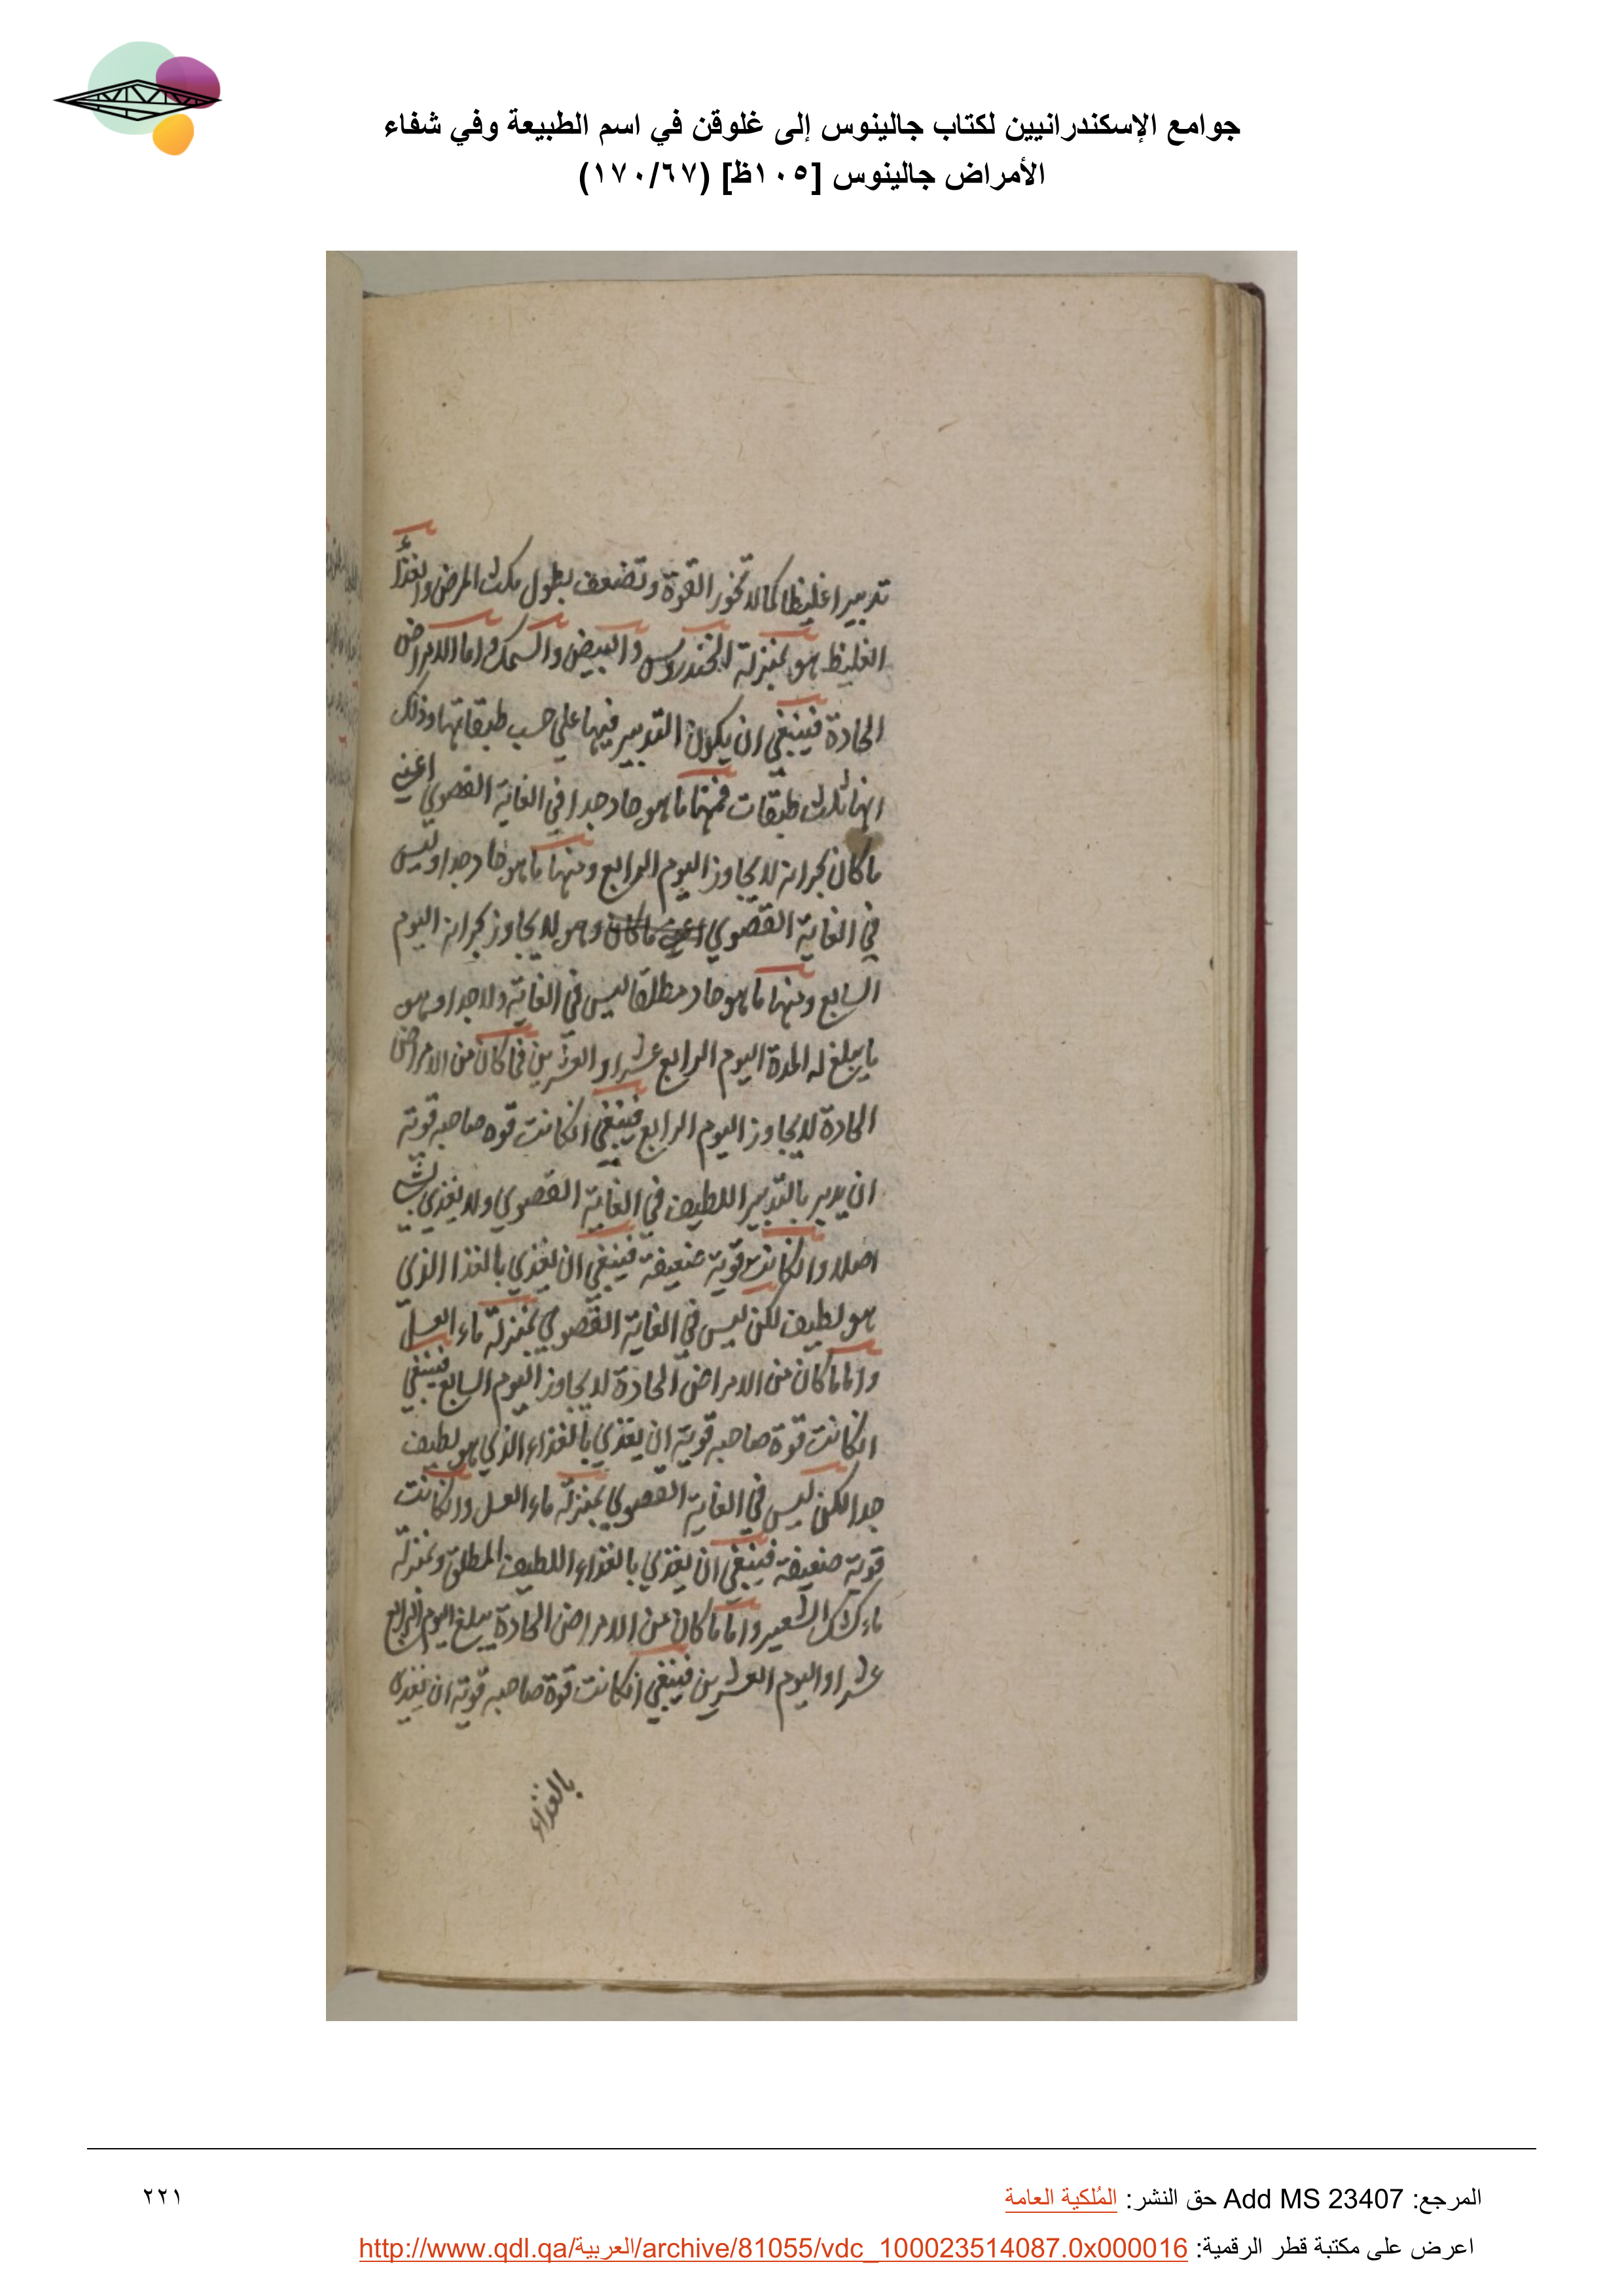 جوامع الإسكندرانيين لكتاب جالينوس إلى غلوقن في اسم الطبيعة وفي شفاء
الأمراض جالينوس [١٠٥ظ] (١٧٠/٦٧)
تدبيرا غليظا كما لا تخور القوة وتضعف بطول مكث المرض والغذاء
الغليظ هو بمنزلة الخندروس والبيض والسمك واما الامراض
الحادة فينبغي ان يكون التدبير فيها علي حسب طبقاتها وذلك
انها ثلث طبقات فمنها ما هو حاد جدا في الغاية القصوي اعني
ما كان بحرانه لا يجاوز اليوم الرابع ومنها ما هو حاد جدا وليس
في الغاية القصوي اعني ما كان وهو لا يجاوز بحرانه اليوم
السابع ومنها ما هو حاد مطلقا ليس في الغاية ولا جدا وهو
ما يبلغ له المدة اليوم الرابع عشر او العشرين فما كان من الامراض
الحادة لا يجاوز اليوم الرابع فينبغي انكانت قوه صاحبه قوية
ان يدبر بالتدبير اللطيف في الغاية القصوي ولا يغذي بشي
اصلا وانكانت قوية ضعيفة فينبغي ان يغذي بالغذا الذي
هو لطيف لكن ليس في الغاية القصوي بمنزلة ماء العسل
واما ما كان من الامراض الحادة لا يجاوز اليوم السابع فينبغي
انكانت قوة صاحبه قوية ان يغذي بالغذاء الذي هو لطيف
جدا لكن ليس في الغاية القصوي بمنزلة ماء العسل وانكانت
قوته ضعيفة فينبغي ان يغذي بالغذاء اللطيف المطلق وبمنزلة
ماء كشك الشعير واما ما كان من الامراض الحادة يبلغ اليوم الرابع
عشر او اليوم العشرين فينبغي انكانت قوة صاحبه قوية ان يغذي
بالغذاء
المرجع: Add MS 23407 حق النشر: المُلكية العامة
٢٢١
اعرض على مكتبة قطر الرقمية: http://www.qdl.qa/العربية/archive/81055/vdc_100023514087.0x000016